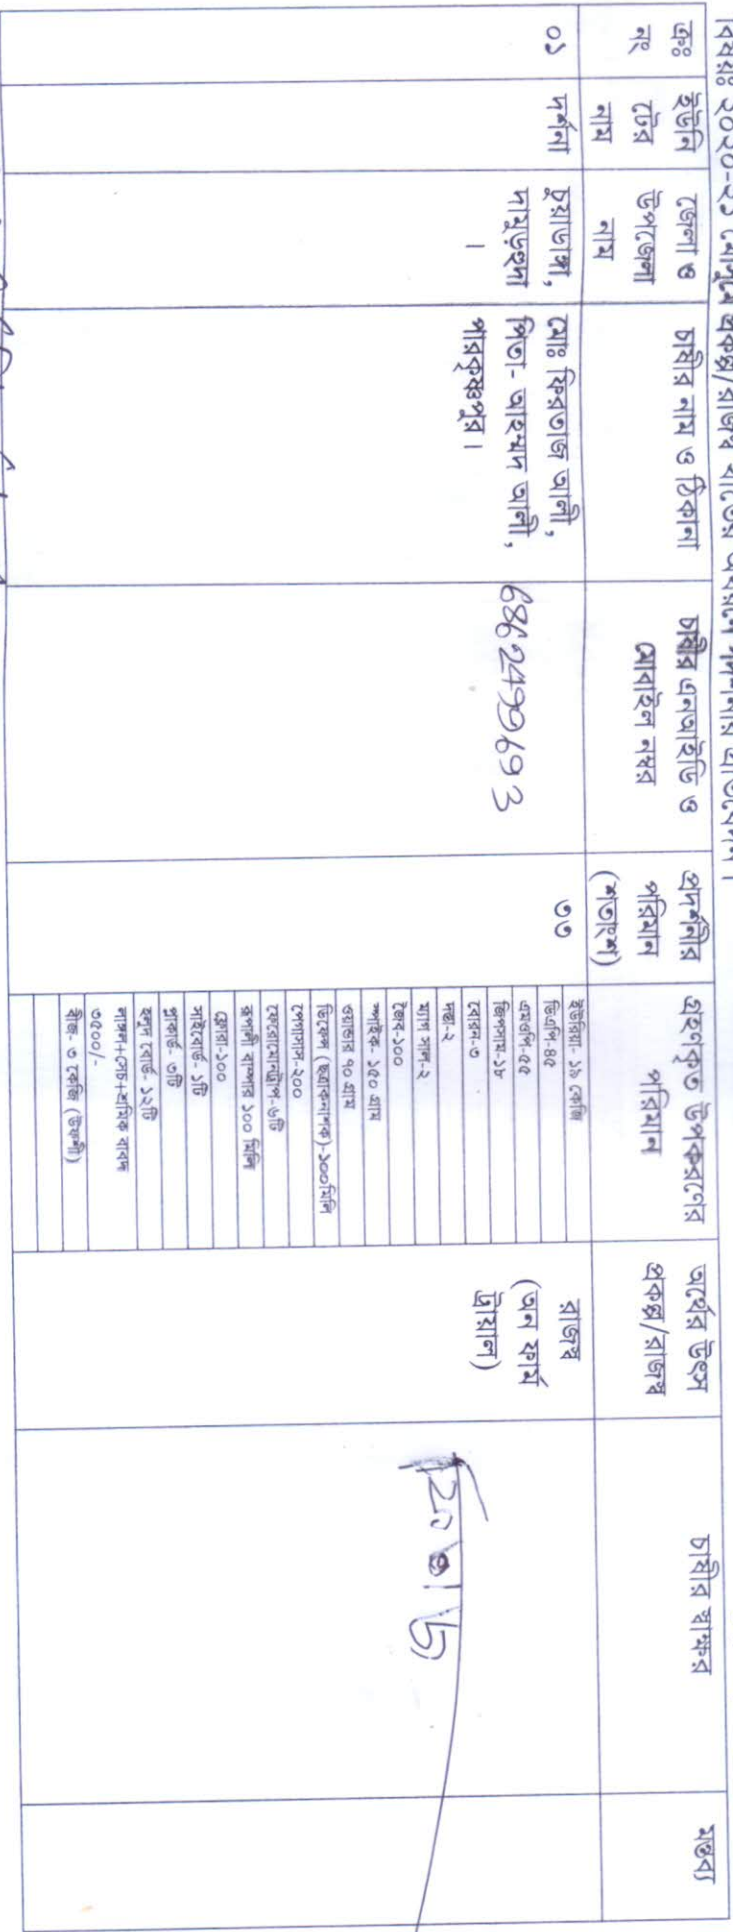 বিষয়ঃ ২০২০-২১ মৌসুমে প্রকল্প/রাজস্ব খাতের
ক্রঃ নং
ইউনি টের নাম
জেলা ও উপজেলা নাম
চাষীর নাম ও ঠিকানা
চাষীর এনআইডি ও মোবাইল নম্বর
প্রদর্শনীর পরিমান (শতাংশ)
গ্রহণকৃত উপকরণের পরিমান
অর্থের উৎস প্রকল্প/রাজস্ব
চাষীর স্বাক্ষর
মন্তব্য
০১
দর্শনা
চুয়াডাঙ্গা,
দামুড়হুদা
।
মোঃ ফিরতাজ আলী,
পিতা- আহম্মদ আলী,
পারকৃষ্ণপুর।
৩৩
ইউরিয়া- ১৯ কেজি
ডিএপি-৪৫
এমওপি-৫৫
জিপসাম-১৮
বোরন-৩
দস্তা-২
ম্যাগ সাল-২
জৈব-১০০
স্পাইক- ১৫০ গ্রাম
ওয়ান্ডার ৭০ গ্রাম
ডিফেন্স (ছত্রাকনাশক)-১০০মিলি
পেগাসাস-২০০
ফেরোমোনট্রাপ-৬টি
রূপালী বাম্পার ১০০ মিলি
ফ্লোরা-১০০
সাইবোর্ড- ১টি
প্লাকার্ড- ৩টি
হলুদ বোর্ড- ১২টি
লাঙ্গল+সেচ+শ্রমিক বাবদ
৩৫০০/-
বীজ- ৩ কেজি (উফশী)
রাজস্ব
(অন ফার্ম
ট্রায়াল)